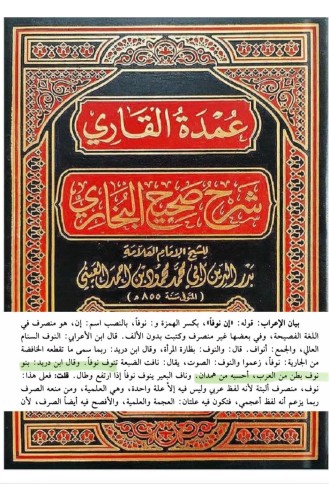 عُمدَةُ القَارِي
شَرح صَحِيح البُخَارِي
للشيخ الإمام العلامة
بدر الدين أبي محمد محمود بن أحمد العيني
(المتوفى سنة ٨٥٥هـ)
بيان الإعراب: قوله: «إن نوفاً»، بكسر الهمزة و: نوفاً، بالنصب اسم: إن، هو منصرف في
اللغة الفصيحة، وفي بعضها غير منصرف وكتبت بدون الألف. قال ابن الأعرابي: النوف السنام
العالي، والجمع: أنواف. قال: والنوف: بظارة المرأة، وقال ابن دريد: ربما سمى ما تقطعه الخافضة
من الجارية: نوفاً، زعموا والنوف: الصوت، يقال: نافت الضبعة تنوف نوفاً. وقال ابن دريد: بنو
نوف بطن من العرب، أحسبه من همدان. وناف البعير ينوف نوفاً إذا ارتفع وطال. قلت: فعل هذا:
نوف، منصرف ألبتة لأنه لفظ عربي وليس فيه إلاَّ علة واحدة، وهي العلمية، ومن منعه الصرف
ربما يزعم أنه لفظ أعجمي، فتكون فيه علتان: العجمة والعلمية، والأفصح فيه أيضاً الصرف، لأن